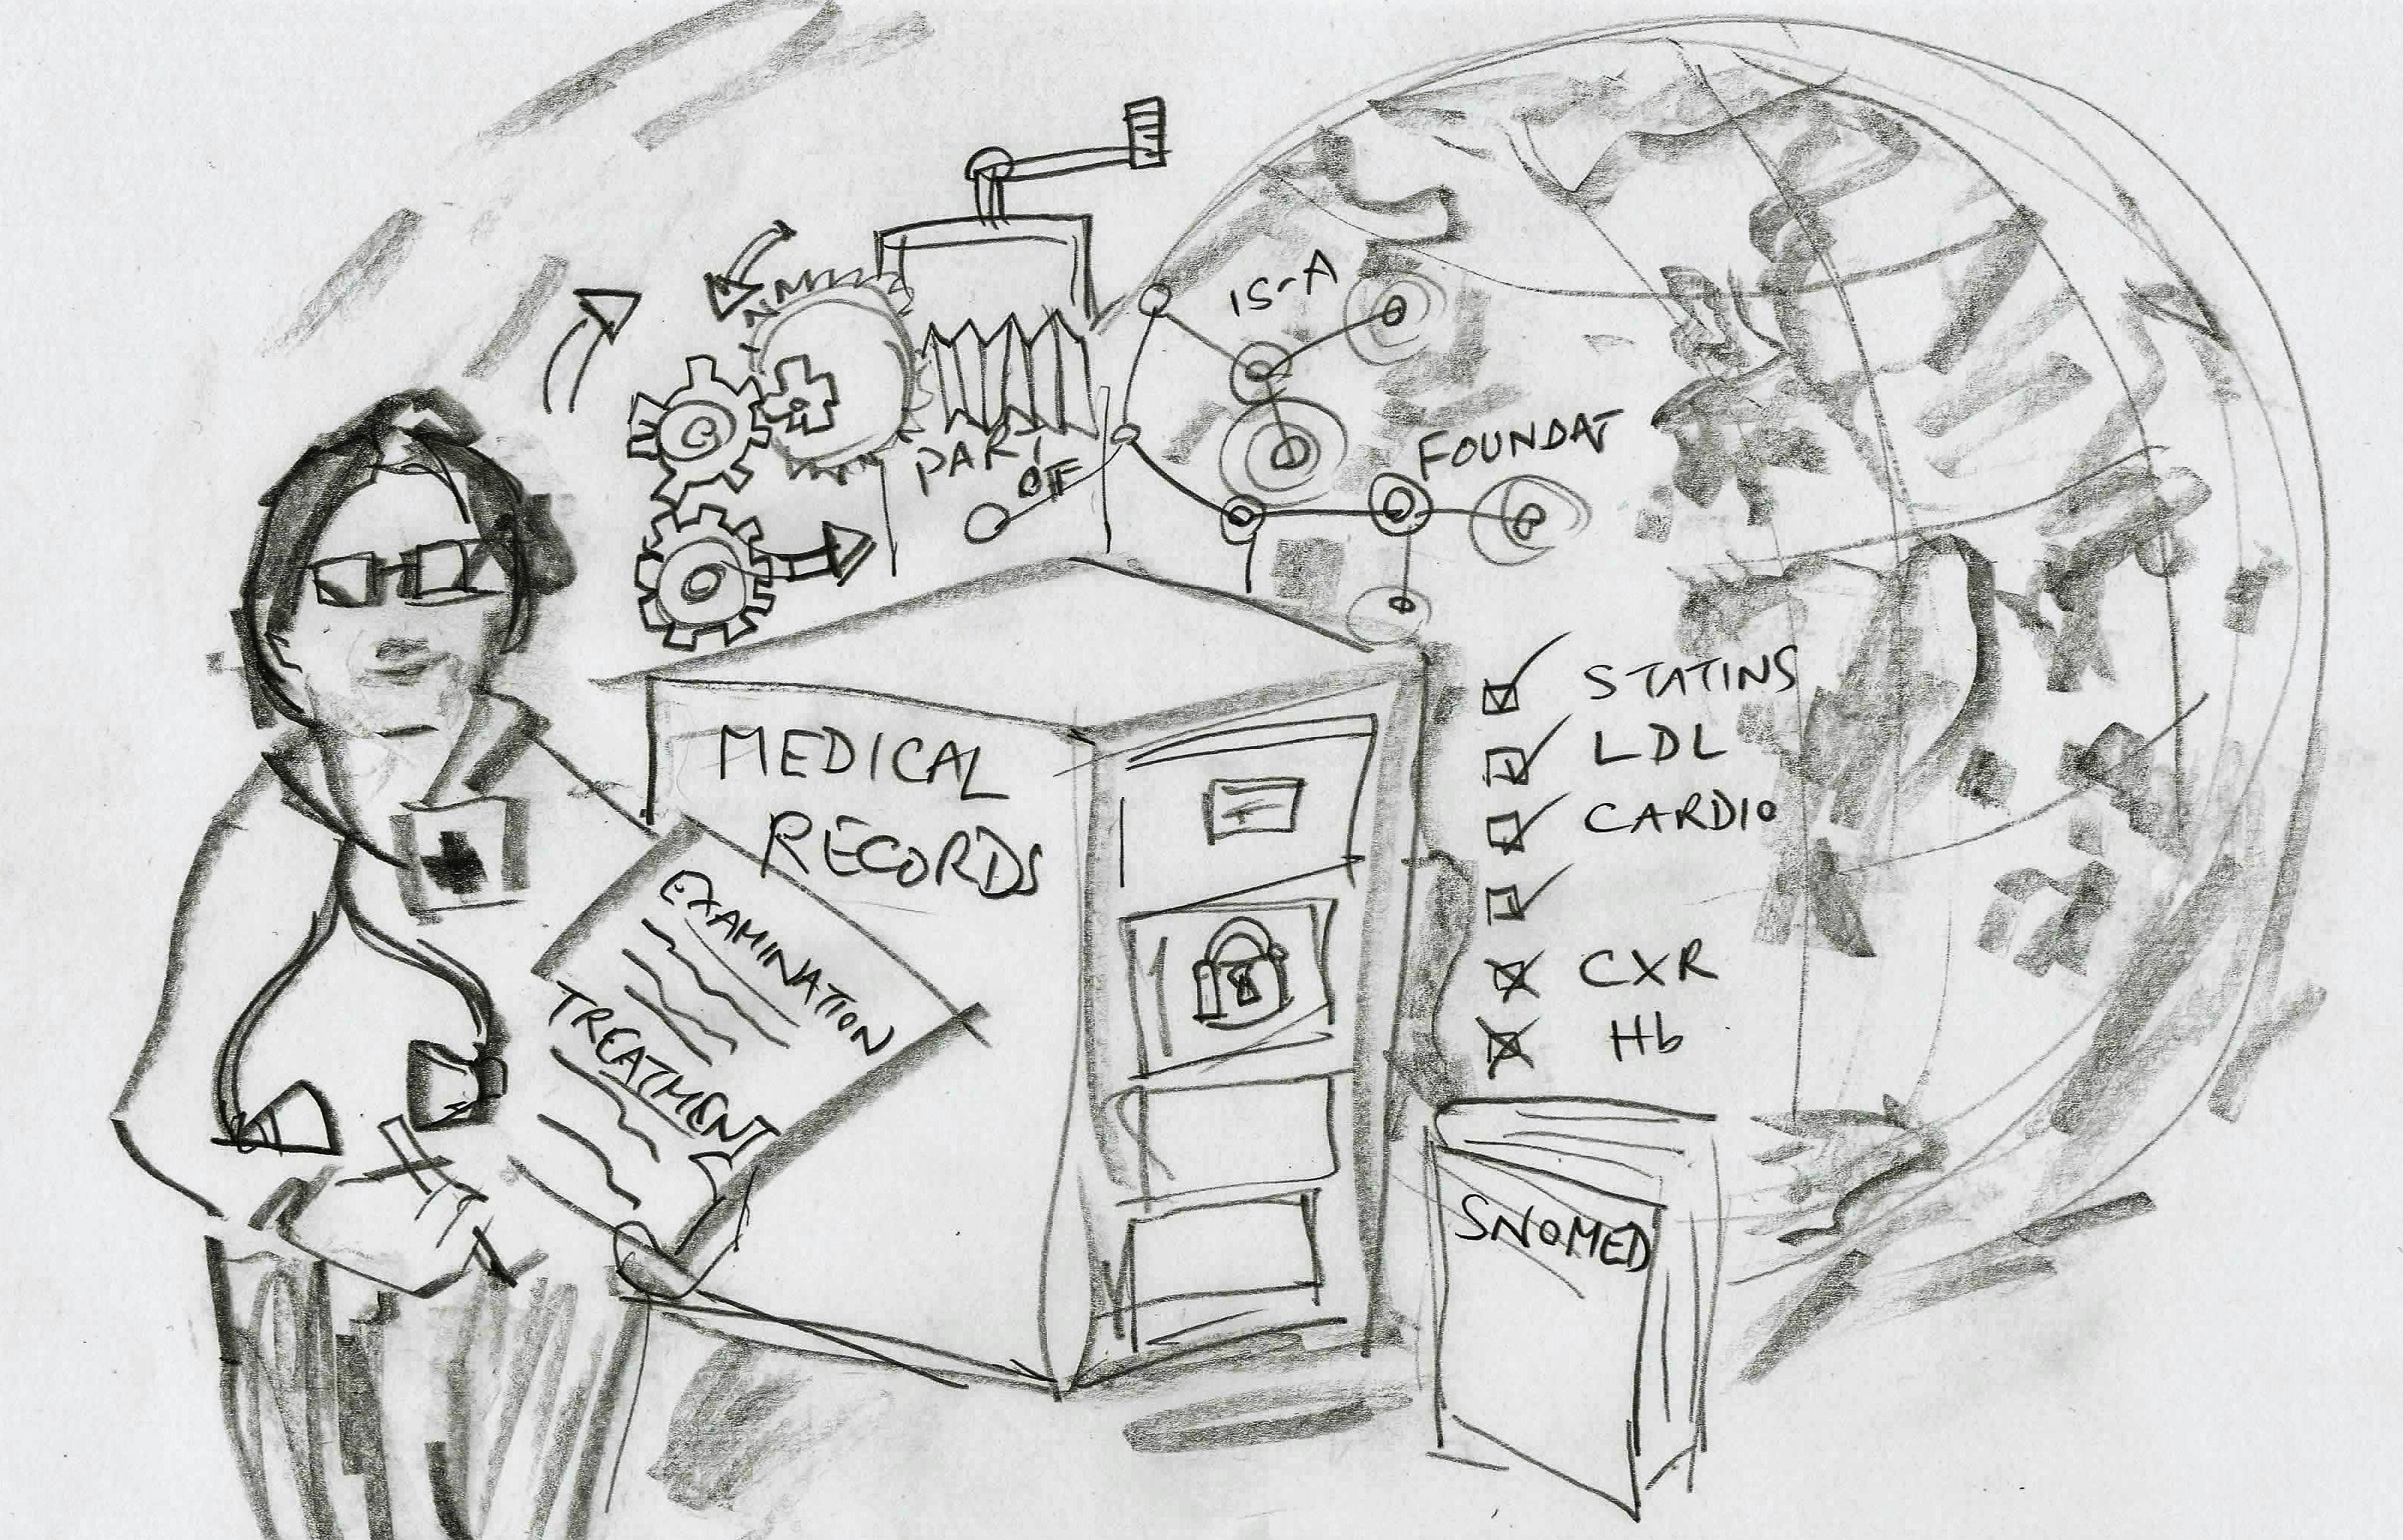 IS-A
PART
OF
FOUNDAT
MEDICAL
RECORDS
EXAMINATION
TREATMENT
STATINS
LDL
CARDIO
CXR
Hb
SNOMED